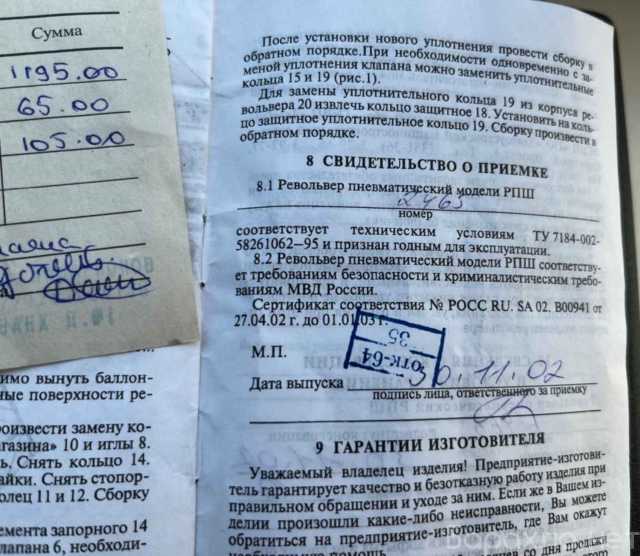 Сумма
1195.00
65.00
105.00
После установки нового уплотнения провести сборку в
обратном порядке.При необходимости одновременно с за-
меной уплотнения клапана можно заменить уплотнительные
кольца 15 и 19 (рис.1).
Для замены уплотнительного кольца 19 из корпуса ре-
вольвера 20 извлечь кольцо защитное 18. Установить на коль-
цо защитное уплотнительное кольцо 19. Сборку произвести в
обратном порядке.
8 СВИДЕТЕЛЬСТВО О ПРИЕМКЕ
8.1 Револьвер пневматический модели РПШ
2463
номер
соответствует техническим условиям ТУ 7184-002-
58261062–95 и признан годным для эксплуатации.
8.2 Револьвер пневматический модели РПШ соответству-
ет требованиям безопасности и криминалистическим требо-
ваниям МВД России.
Сертификат соответствия № РОСС RU. SA 02. B00941 от
27.04.02 г. до 01.01.03 г.
35
ОТК-64
М.П.
Дата выпуска 30.11.02
подпись лица, ответственного за приемку
9 ГАРАНТИИ ИЗГОТОВИТЕЛЯ
Уважаемый владелец изделия! Предприятие-изготови-
тель гарантирует качество и безотказную работу изделия при
правильном обращении и уходе за ним. Если же в Вашем из-
делии произошли какие-либо неисправности, Вы можете
обратиться на предприятие-изготовитель, где Вам окажут
необходимую помощь.
со дня продажи
имо вынуть баллон-
ные поверхности ре-
роизвести замену ко-
агазина» 10 и иглы 8.
ь. Снять кольцо 14.
айки. Снять стопор-
олец 11 и 12. Сборку
емента запорного 14
лапана 6, необходи-